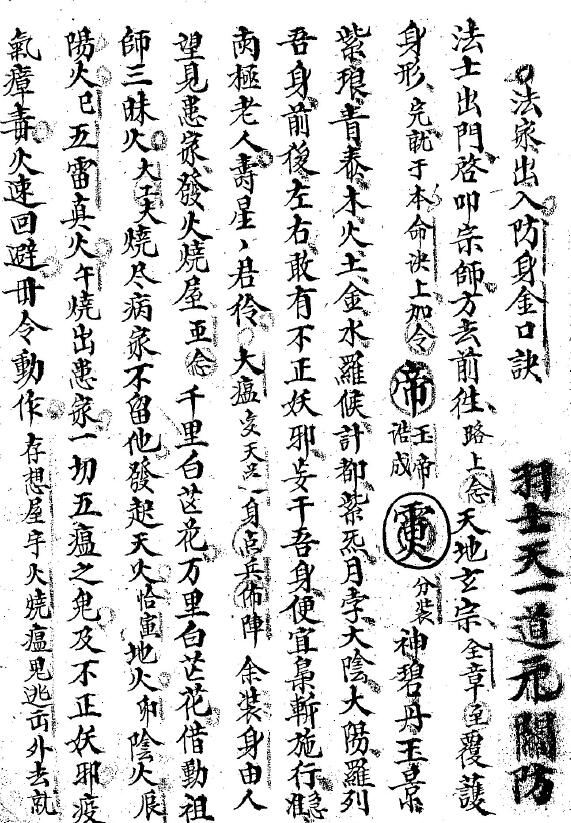 羽士天一道元關防
法家出入防身金口訣
法士出門啓叩宗師方去前往路上念天地玄宗全章至覆護
身形完就于本命訣上加令帝玉帝誥成分裝神碧丹玉景
紫琅青泰木火土金水羅候計都紫炁月孛大陰大陽羅列
吾身前後左右敢有不正妖邪妄干吾身便宜梟斬施行
両極老人壽星君伶大瘟交天一身点兵佈陣余裝身由人
望見患家發火燒屋亚念千里白芒花万里白芒花借動祖
師三昧火大燒尽病家不留他發起天火恰寅地火卯陰火辰
陽火巳五雷真火午燒出患家一切五瘟之鬼及不正妖邪疫
氣瘴毒火速回避毋令動作存想屋宇火燒瘟鬼逃缶外去就